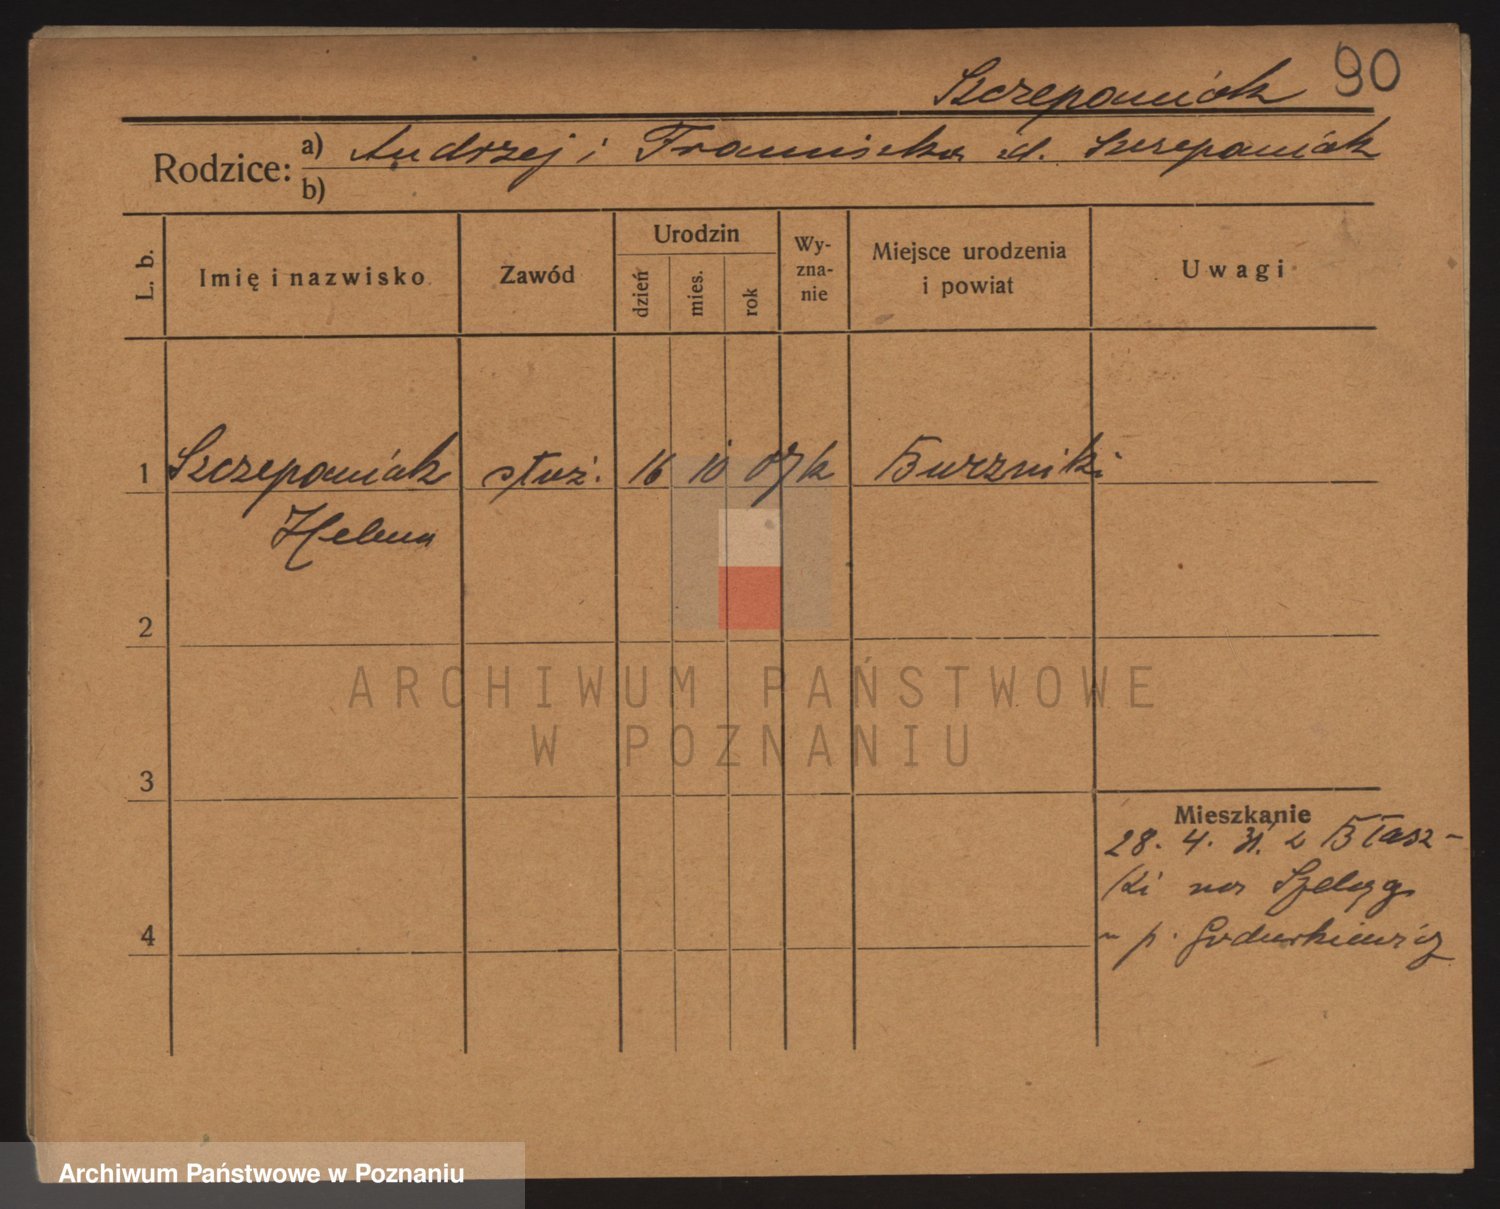 Szczepaniak 90
Rodzice: a) Andrzej i Franciszka d. Szczepaniak
b)
L. b. Imię i nazwisko Zawód Urodzin dzień mies. rok Wy-zna-nie Miejsce urodzenia i powiat Uwagi
1 Szczepaniak służ. 16 10 07 k Burzniki
Helena
2
3
Mieszkanie
28. 4. 31. z Błasz-
ki na Szeląg
4 p.
ARCHIWUM PAŃSTWOWE
W POZNANIU
Archiwum Państwowe w Poznaniu